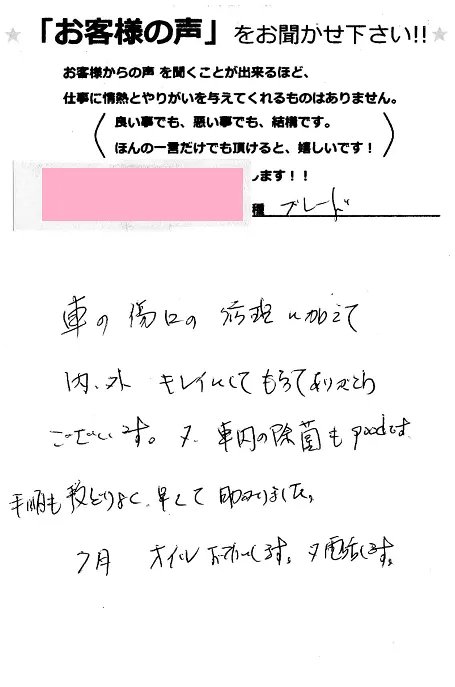 「お客様の声」をお聞かせ下さい!!
お客様からの声 を聞くことが出来るほど、
仕事に情熱とやりがいを与えてくれるものはありません。
良い事でも、悪い事でも、結構です。
ほんの一言だけでも頂けると、嬉しいです！
します！！
種 ブレード
車の傷口の 修理 に加えて
内、外 キレイにしてもらってありがとう
ございます。又、車内の除菌も goodです
手順も段どりよく、早くて 助かりました。
7月 オイルおねがいします。又電話します。